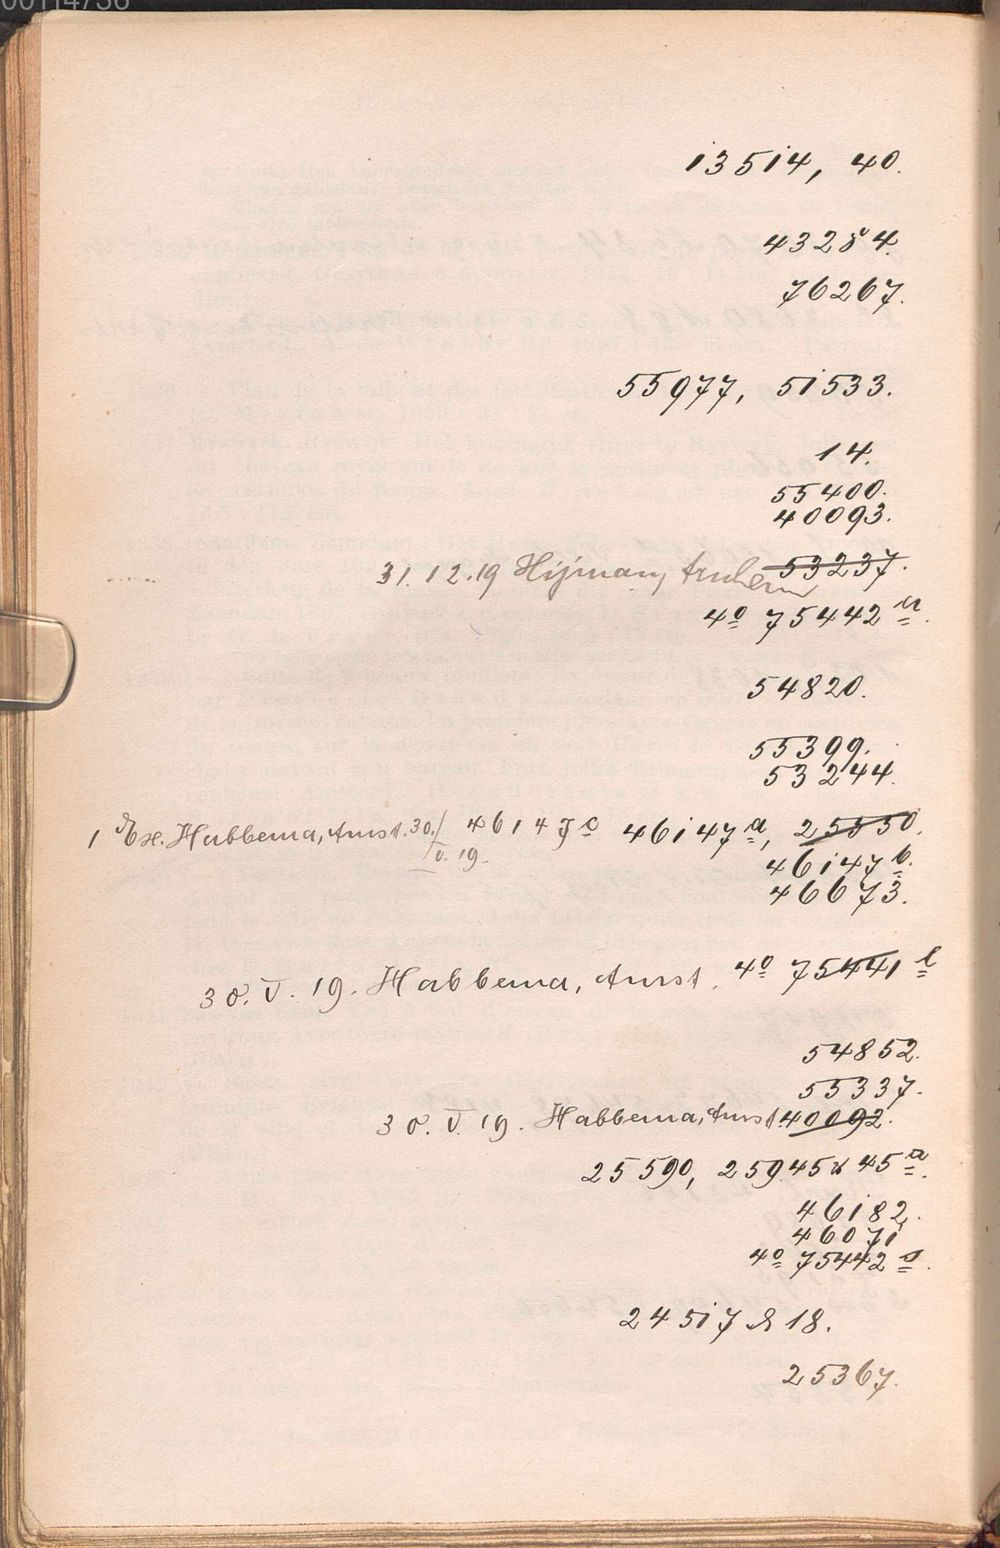 13514, 40.
43284.
76267.
55977, 51533.
14.
55400.
40093.
31.12.19 Hijman, Arnhem 53237.
4º 75442 n.
54820.
55399.
53244.
1 Ex. Habbema, Amst. 30/V.19. 46147 c 46147 a, 25550.
46147 b.
46673.
30.V.19. Habbema, Amst. 4º 75441 l
54852.
55337.
30.V.19. Habbema, Amst 40092.
25590, 25945 & 45 a.
46182.
46071
4º 75442 o.
24517 & 18.
25367.